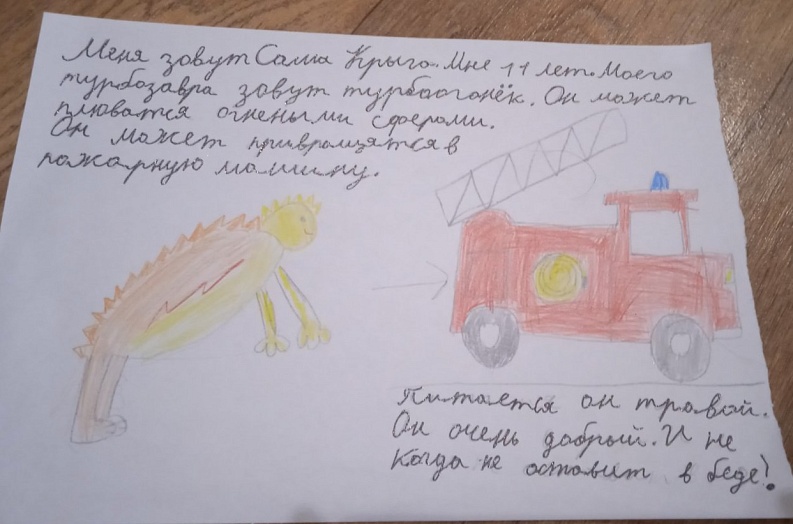 Меня зовут Саша Крыго. Мне 11 лет. Моего
турбозавра зовут турбоогонёк. Он может
плюватся огнеными сферами.
Он может привращятся в
пожарную машину.
Питается он травой.
Он очень добрый. И не
когда не оставит в беде!